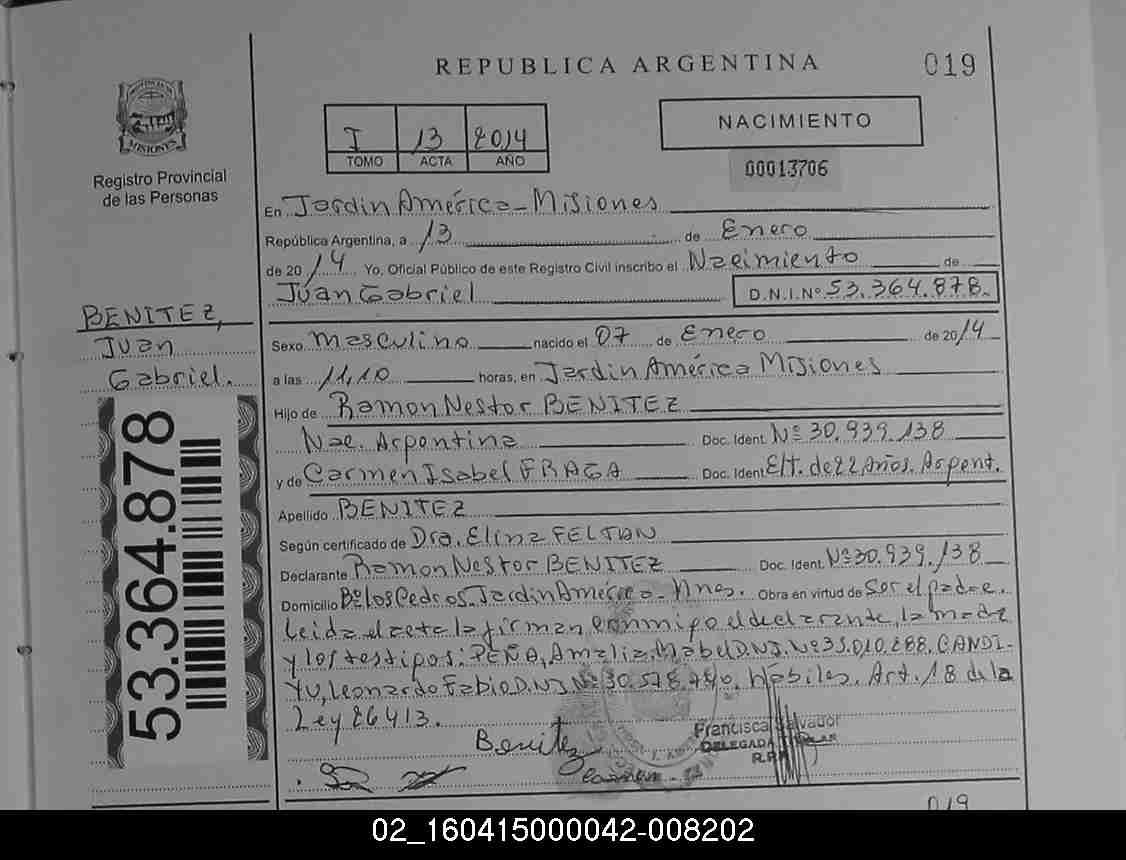 REPUBLICA ARGENTINA
019
PROVINCIA DE
MISIONES
Registro Provincial
de las Personas
I 13 2014
TOMO ACTA AÑO
NACIMIENTO
00013706
En Jardin América - Misiones
República Argentina, a 13 de Enero
de 2014 Yo, Oficial Público de este Registro Civil inscribo el Nacimiento de
Juan Gabriel D.N.I.Nº 53.364.878.
BENITEZ,
Juan
Gabriel.
53.364.878
Sexo masculino nacido el 07 de Enero de 2014
a las 11,10 horas, en Jardin América Misiones
Hijo de Ramon Nestor BENITEZ
Nac. Argentina Doc. Ident. Nº 30.939.138
y de Carmen Isabel FRAGA Doc. Ident. E/t. de 22 Años. Argent.
Apellido BENITEZ
Según certificado de Dra. Elina FELTAN
Declarante Ramon Nestor BENITEZ Doc. Ident. Nº 30.939.138
Domicilio Bº Los Cedros. Jardin América - Mnes. Obra en virtud de Ser el padre.
Leida el acta la firman conmigo el declarante, la madre
y los testigos: PEÑA, Amalia Mabel D.N.I. Nº 35.010.288. CANDI-
YU, Leonardo Fabio D.N.I. Nº 30.578.790. Hábiles. Art. 18 de la
Ley 26413.
Benitez
Francisca Salvador
DELEGADA TITULAR
R.R.P
Carmen
019
02_160415000042-008202